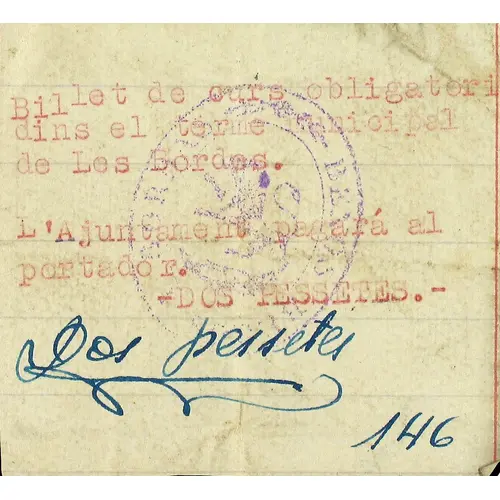 Billet de curs obligatori
dins el terme municipal
de Les Bordes.
L'Ajuntament pagará al
portador.
-DOS PESSETES.-
Dos pessetes
146